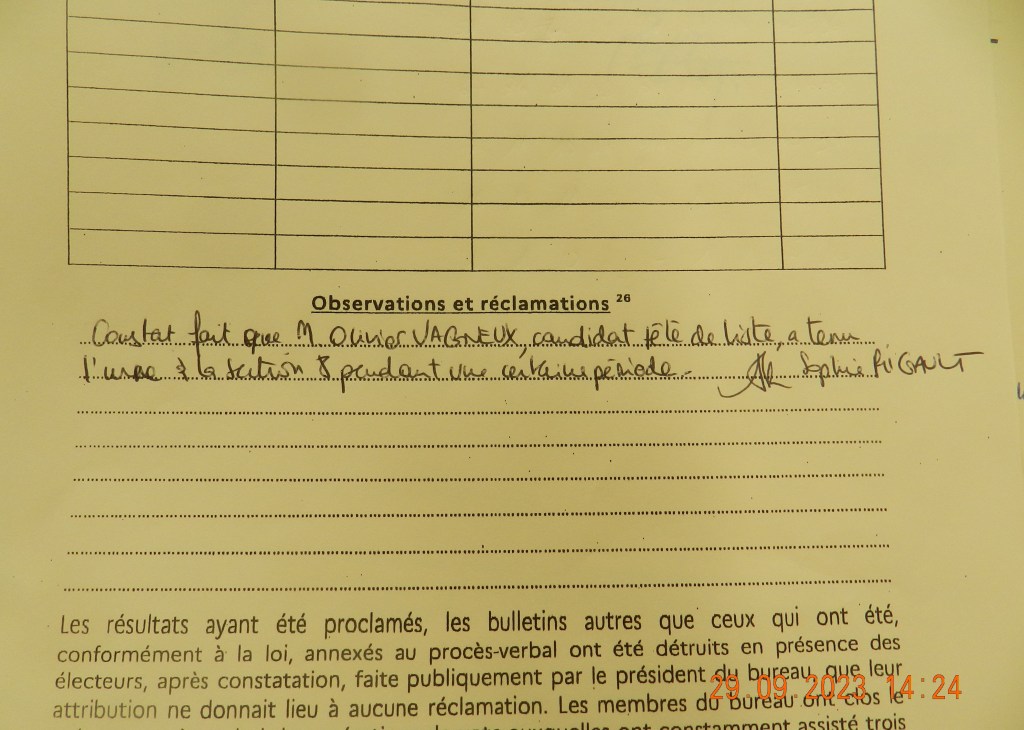 Observations et réclamations 26
Constat fait que M Olivier VAGNEUX, candidat tête de liste, a tenu
l'urne à la section 8 pendant une certaine période. Sophie RIGAULT
Les résultats ayant été proclamés, les bulletins autres que ceux qui ont été,
conformément à la loi, annexés au procès-verbal ont été détruits en présence des
électeurs, après constatation, faite publiquement par le président du bureau, que leur
attribution ne donnait lieu à aucune réclamation. Les membres du bureau ont clos le
29.09.2023 14:24
ont constamment assisté trois